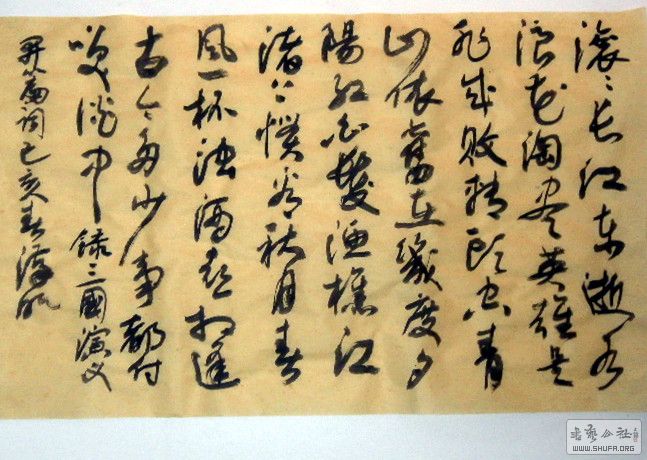 滚〻长江东逝水
浪花淘尽英雄是
非成败转头空青
山依舊在幾度夕
陽红白髮渔樵江
渚上惯看秋月春
風一杯浊酒喜相逢
古今多少事都付
笑谈中 録三國演义
开篇词己亥春
书艺公社
WWW.SHUFA.ORG